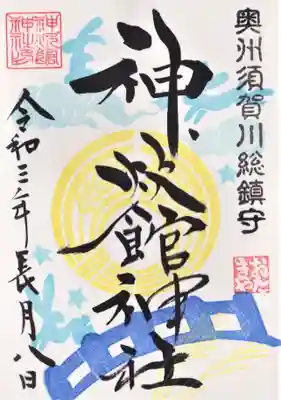 奥州須賀川総鎮守
神炊館神社
令和三年長月八日